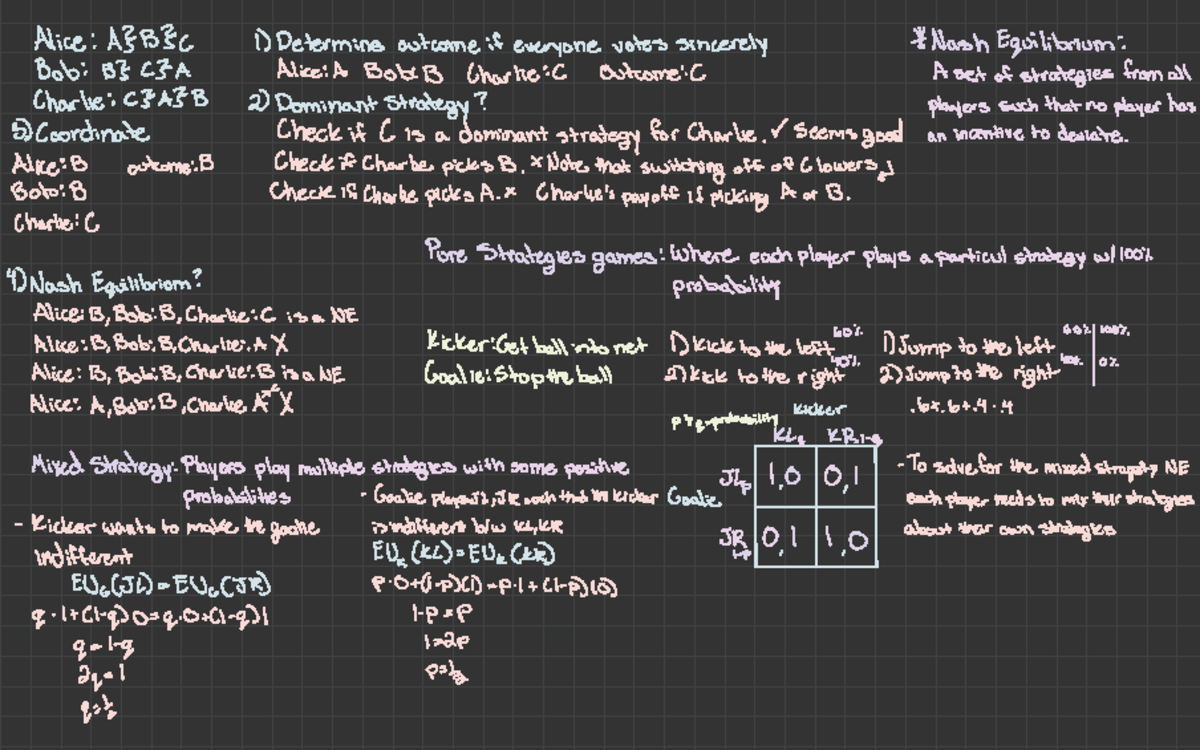 Alice: A≻B≻C
Bob: B≻C≻A
Charlie: C≻A≻B
1) Determine outcome if everyone votes sincerely
Alice: A Bob: B Charlie: C Outcome: C
2) Dominant Strategy?
Check if C is a dominant strategy for Charlie. ✓ Seems good
Check if Charlie picks B. × Note that switching off of C lowers
Check if Charlie picks A. × Charlie's payoff if picking A or B.
* Nash Equilibrium:
A set of strategies from all
players such that no player has
an incentive to deviate.
3) Coordinate
Alice: B outcome: B
Bob: B
Charlie: C
4) Nash Equilibrium?
Alice: B, Bob: B, Charlie: C is a NE
Alice: B, Bob: B, Charlie: A X
Alice: B, Bob: B, Charlie: B is a NE
Alice: A, Bob: B, Charlie A X
Pure Strategies games: Where each player plays a particul strategy w/ 100%
probability
Kicker: Get ball into net
Goalie: Stop the ball
1) Kick to the left 60%
2) Kick to the right 40%
1) Jump to the left 60% 100%
2) Jump to the right 0%
.6 × .6 + .4 · .4
p + q = probability
Kicker
KL q KR 1-q
Goalie
JL p 1,0 0,1
JR 1-p 0,1 1,0
- To solve for the mixed strapsty NE
each player needs to mix their strategies
about their own strategies
Mixed Strategy: Players play multiple strategies with some positive
probabilities
- Kicker wants to make the goalie
indifferent
EU_G(JL) = EU_G(JR)
q · 1 + (1-q) 0 = q · 0 + (1-q) 1
q = 1-q
2q = 1
q = ½
- Goalie plays JL, JR such that the kicker
is indifferent b/w KL, KR
EU_K(KL) = EU_K(KR)
P · 0 + (1-p)(1) = p · 1 + (1-p)(0)
1-p = p
1 = 2p
p = ½